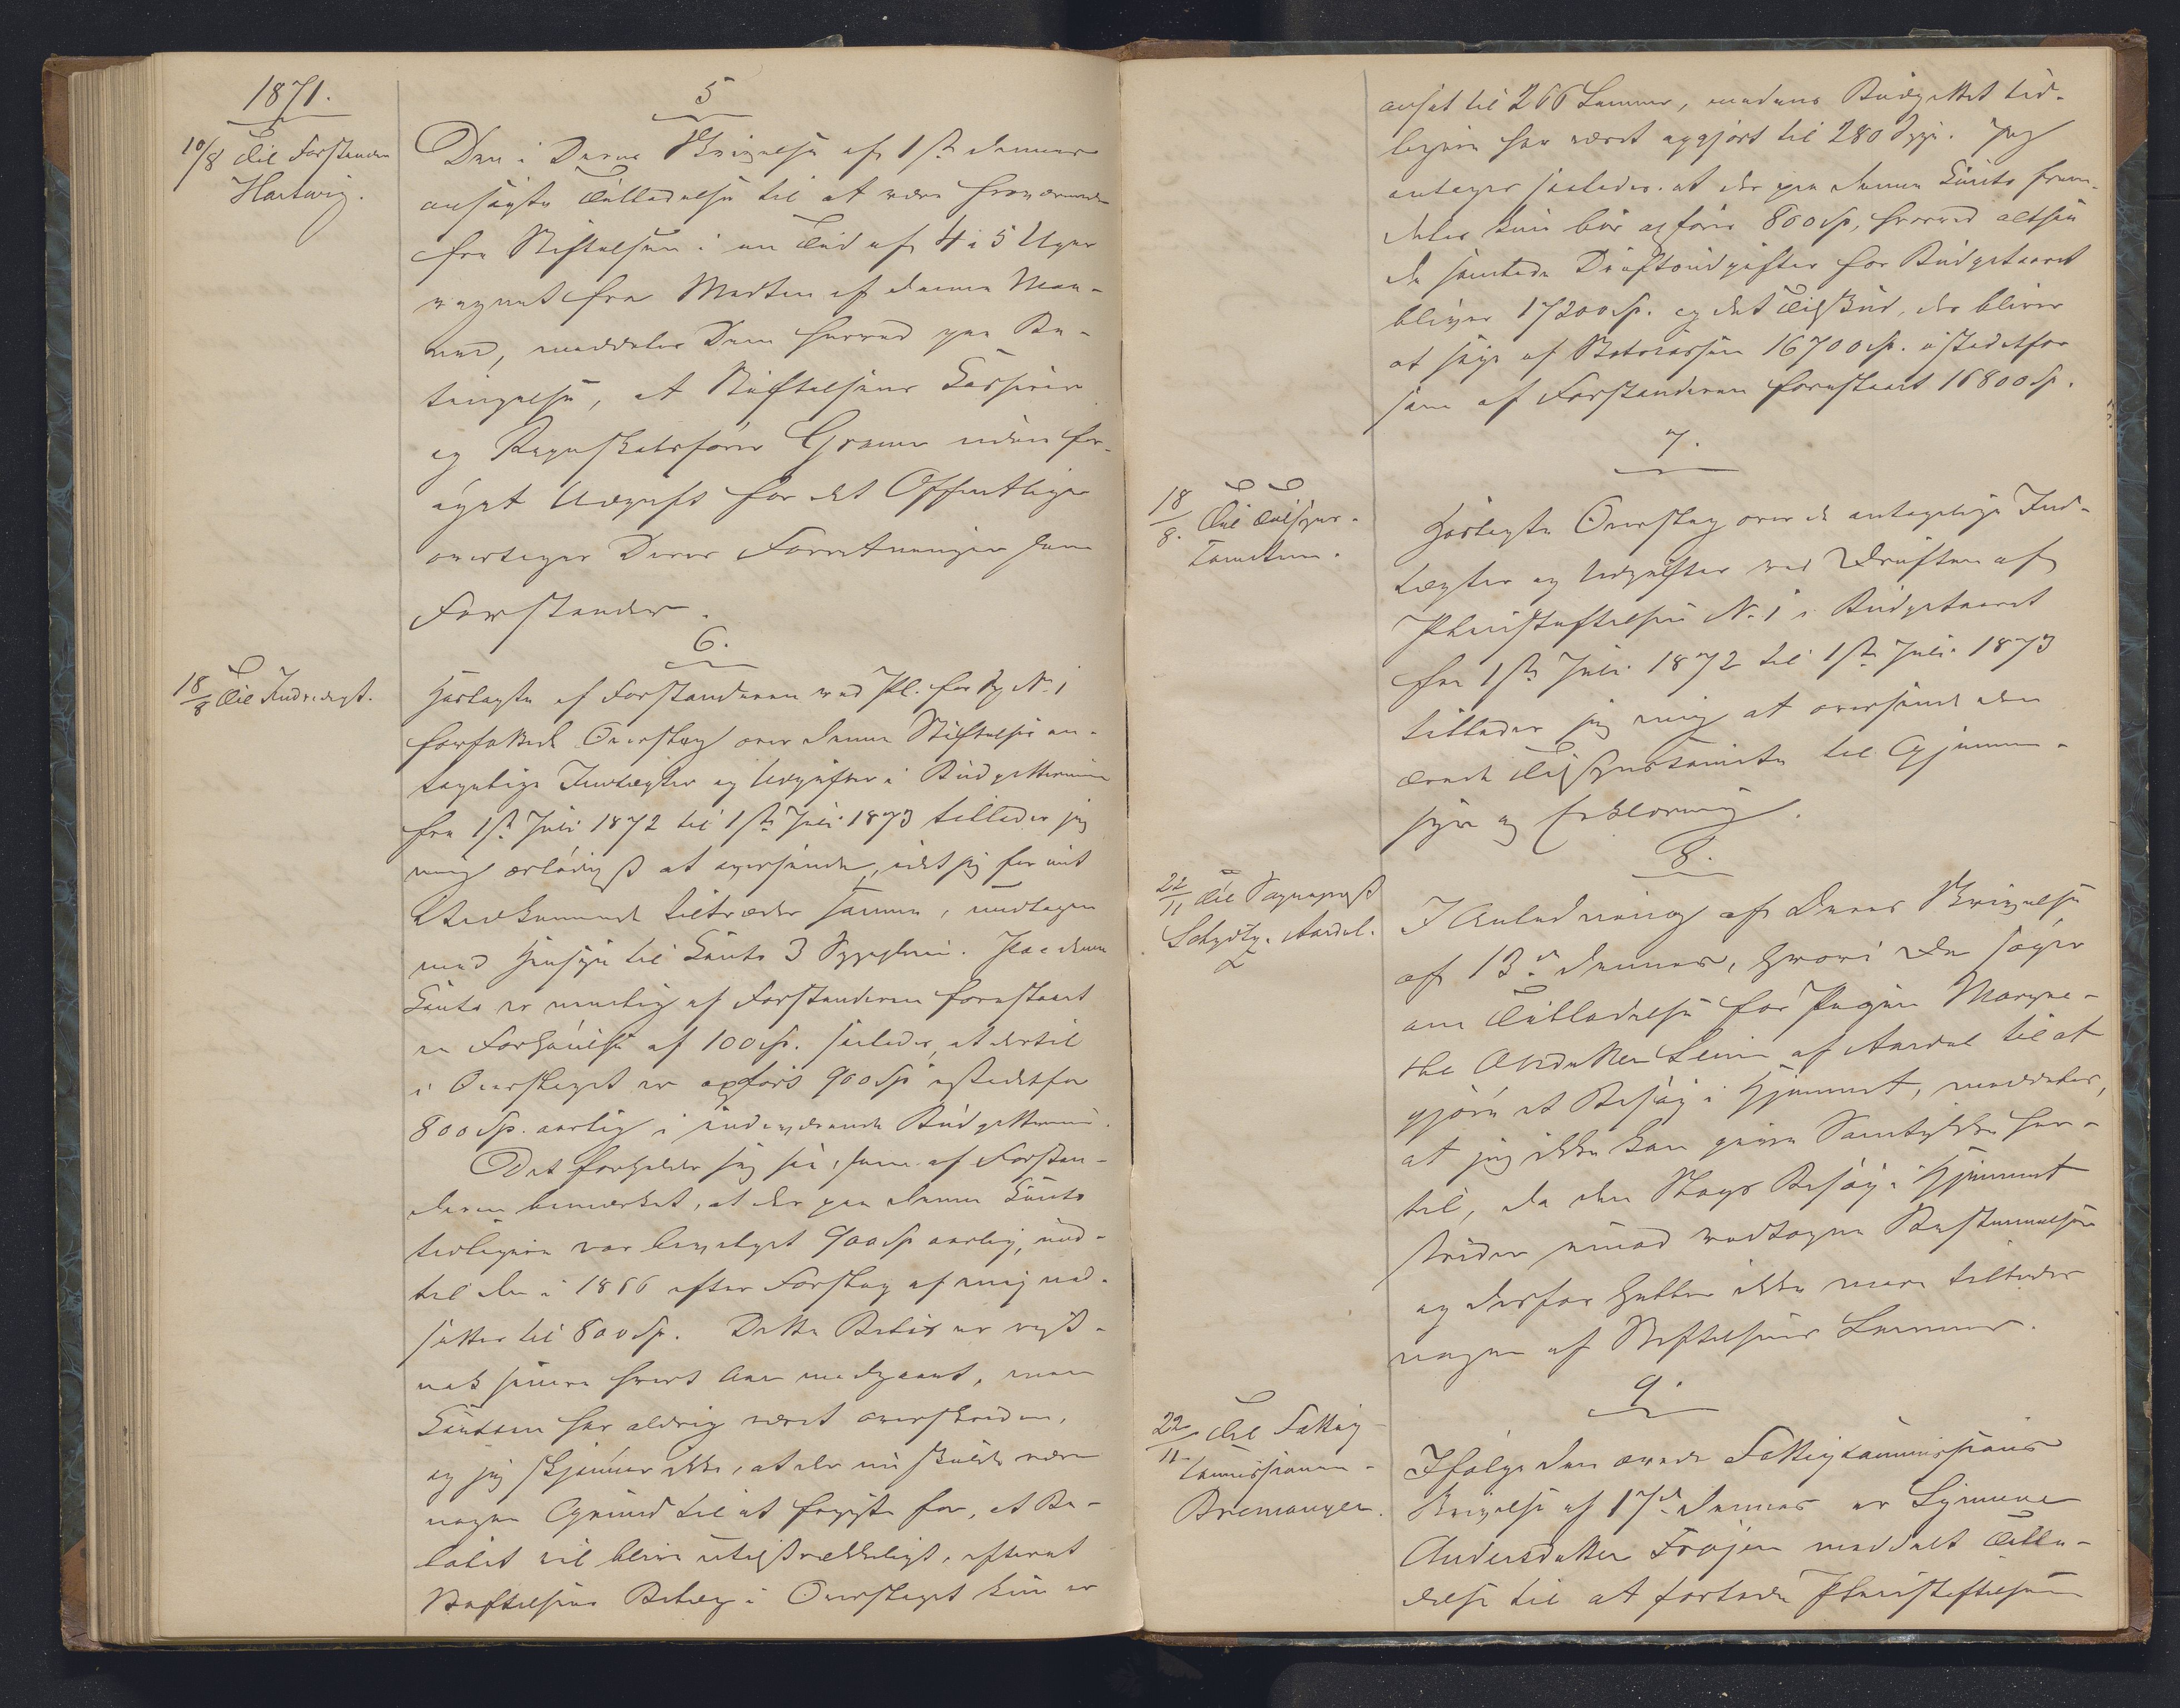 1871.
10/8 Til Forstander
Hartwig.
5
Den i Deres Skrivelse af 1ste dennes
ansøgte Tilladelse til at være fraværende
fra Stiftelsen i en Tid af 4 à 5 Uger
regnet fra Midten af denne Maa-
ned, meddeles Dem herved paa Be-
tingelse, at Stiftelsens Casserer
og Regnskabsfører Gram uden for-
øget Udgift for det Offentlige
overtager Deres Forretninger som
Forstander.
6.
18/8 Til Indredept.
Hoslagte af Forstanderen ved Pl. for Sp. No 1
forfattede Overslag over denne Stiftelses an-
tagelige Indtægter og Udgifter i Budgetterminen
fra 1ste Juli 1872 til 1ste Juli 1873 tillader jeg
mig ærbødigst at oversende, idet jeg for mit
Vedkommende tiltræder samme, undtagen
med Hensyn til Conto 3 Sygepleie. Paa denne
Conto er nemlig af Forstanderen foreslaaet
en Forhøielse af 100 Sp. saaledes, at dertil
i Overslaget er opført 900 Sp istedetfor
800 Sp. aarlig i indeværende Budgettermin.
Det forholder sig saa, som af Forstan-
deren bemærket, at der paa denne Conto
tidligere var bevilget 900 Sp aarlig, ind-
til den i 1866 efter Forslag af mig ned-
sattes til 800 Sp. Dette Beløb er vist-
nok senere hvert Aar medgaaet, men
Contoen har aldrig været overskreden,
og jeg skjønner ikke, at der nu skulde være
nogen Grund til at frygte for, at Be-
løbet vil blive utilstrækkeligt, efterat
Stiftelsens Belæg i Overslaget kun er
ansat til 266 Lemmer, medens Budgettet tid-
ligere har været opgjort til 280 Syge. Jeg
antager saaledes, at der paa denne Conto frem-
deles kun bør opføres 800 Sp, hvorved altsaa
de samlede Driftsudgifter for Budgetaaret
bliver 17200 Sp. og det Tilskud, der bliver
at søge af Statskassen 16700 Sp. istedetfor
som af Forstanderen foreslaaet 16800 Sp.
7.
18/8. Til Tilsyns-
Comiteen.
Hoslagte Overslag over de antagelige Ind-
tægter og Udgifter ved Driften af
Pleiestiftelsen No 1 i Budgetaaret
fra 1ste Juli 1872 til 1ste Juli 1873
tillader jeg mig at oversende den
ærede Tilsynscomite til Gjennem-
syn og Erklæring.
8.
22/11 Til Sogneprest
Schydtz. Aardal.
I Anledning af Deres Skrivelse
af 13de dennes, hvori De søger
om Tilladelse for Pigen Margre-
the Olsdatter Lein af Aardal til at
gjøre et Besøg i Hjemmet, meddeles,
at jeg ikke kan give Samtykke her-
til, da den Slags Besøg i Hjemmet
strider imod vedtagne Bestemmelser
og derfor heller ikke mere tillades
nogen af Stiftelsens Lemmer.
9.
22/11 Til Fattig-
Commissionen
Bremanger.
Ifølge den ærede Fattigcommissions
Skrivelse af 17de dennes er
Andersdatter Frøjen meddelt Tilla-
delse til at forlade Pleiestiftelsen